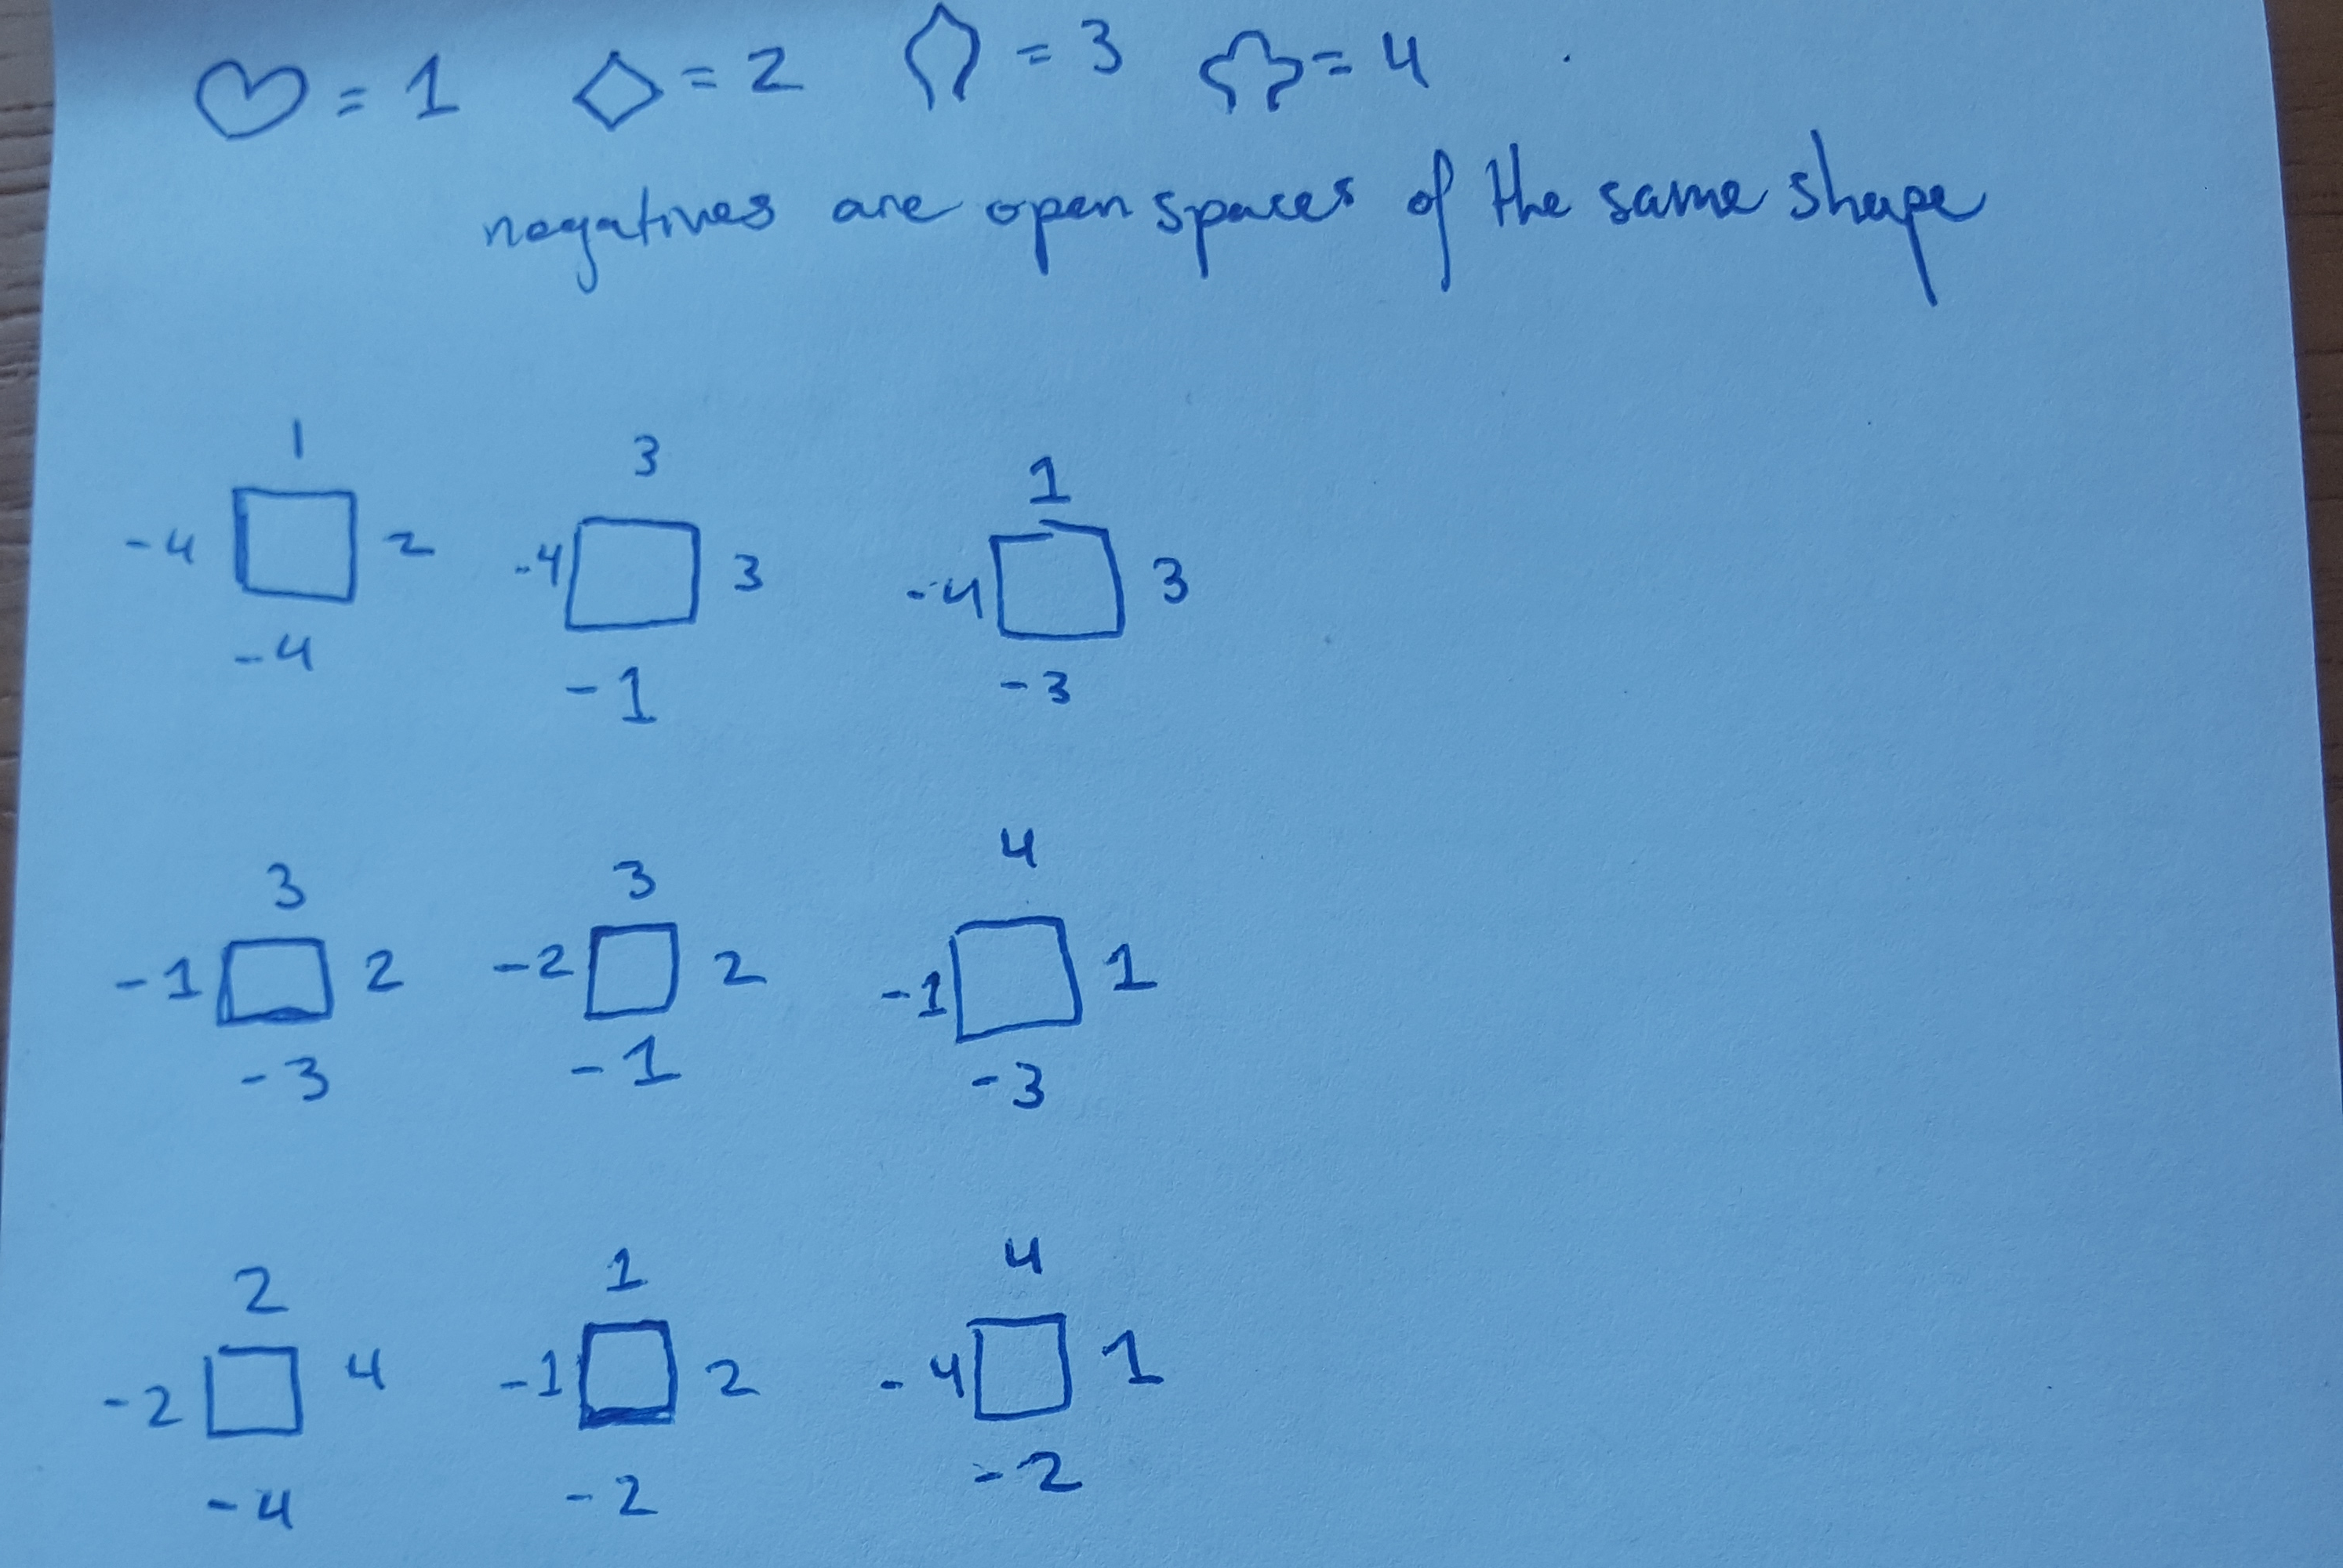 ♡ = 1 ◇ = 2 ♤ = 3 ♧ = 4
negatives are open spaces of the same shape
1 3 1
-4 2 -4 3 -4 3
-4 -1 -3
3 3 4
-1 2 -2 2 -1 1
-3 -1 -3
2 1 4
-2 4 -1 2 -4 1
-4 -2 -2